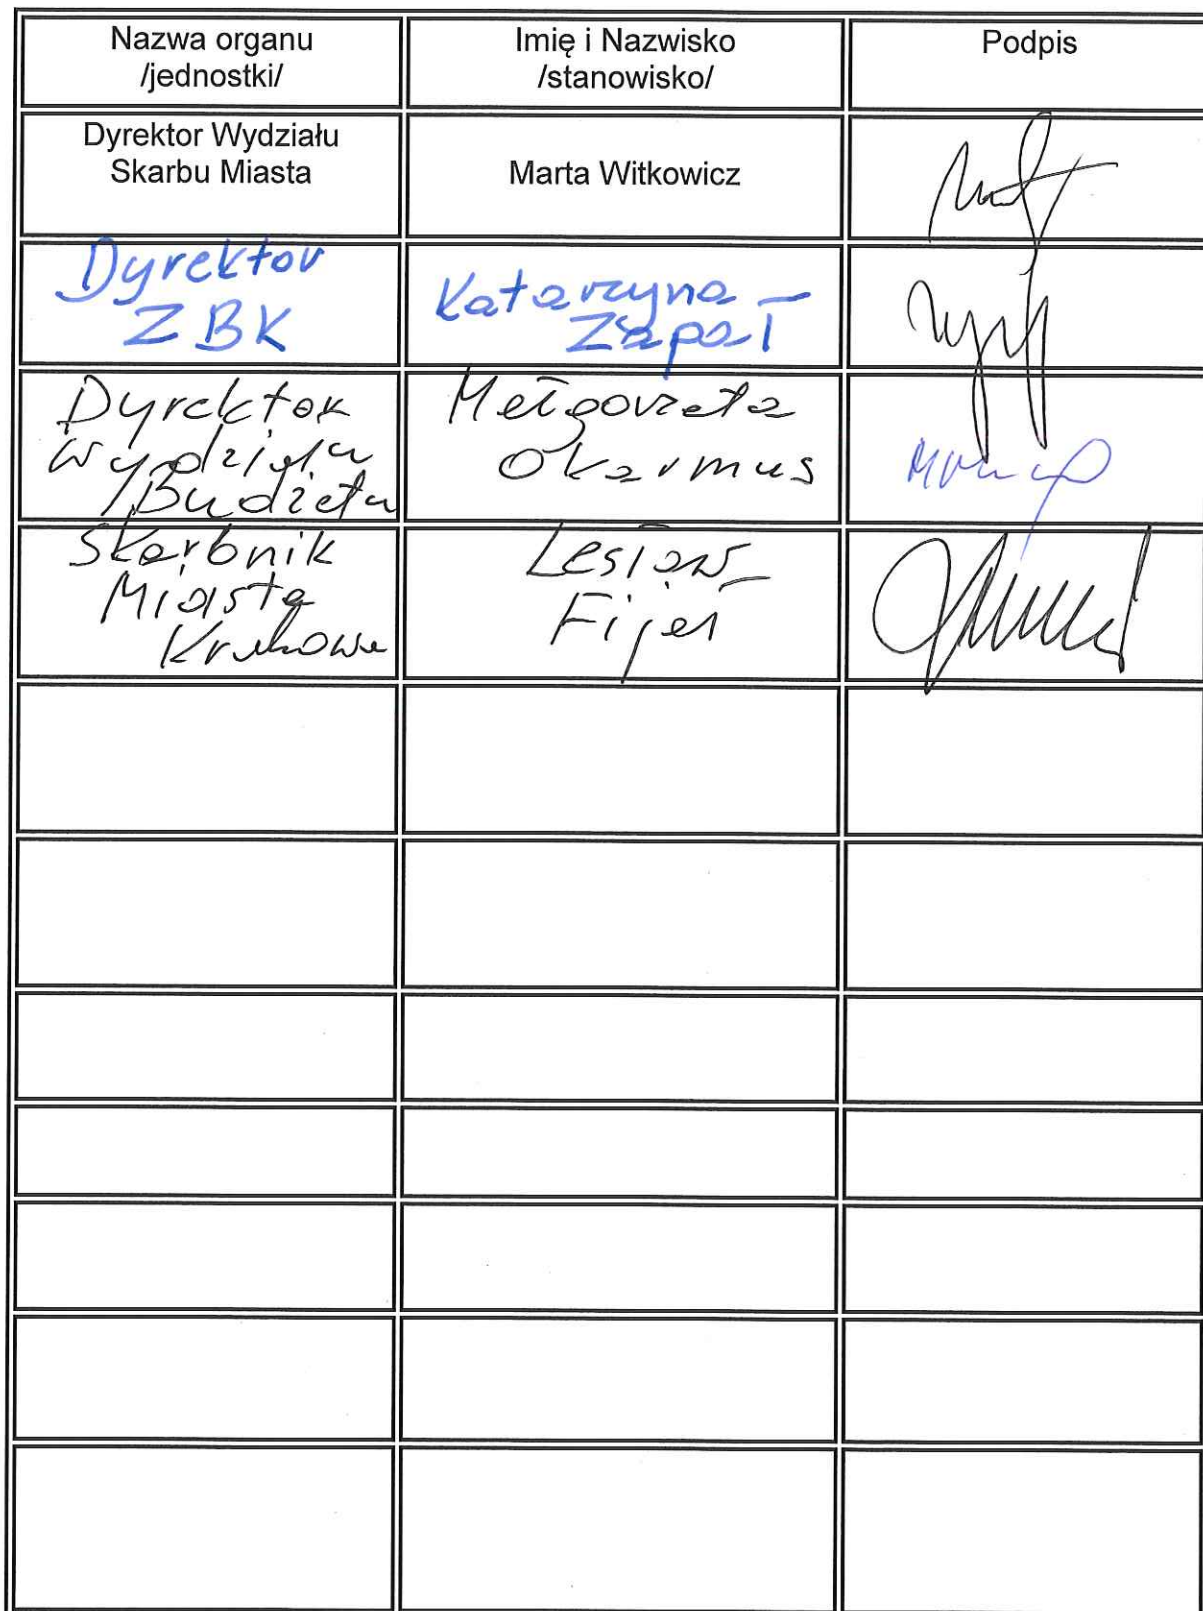 Nazwa organu
/jednostki/
Imię i Nazwisko
/stanowisko/
Podpis
Dyrektor Wydziału
Skarbu Miasta
Marta Witkowicz
Dyrektor
ZBK
Katarzyna
Zapał
Dyrektor
Wydziału
Budżetu
Małgorzata
Okarmus
Skarbnik
Miasta
Krakowa
Lesław
Fijał